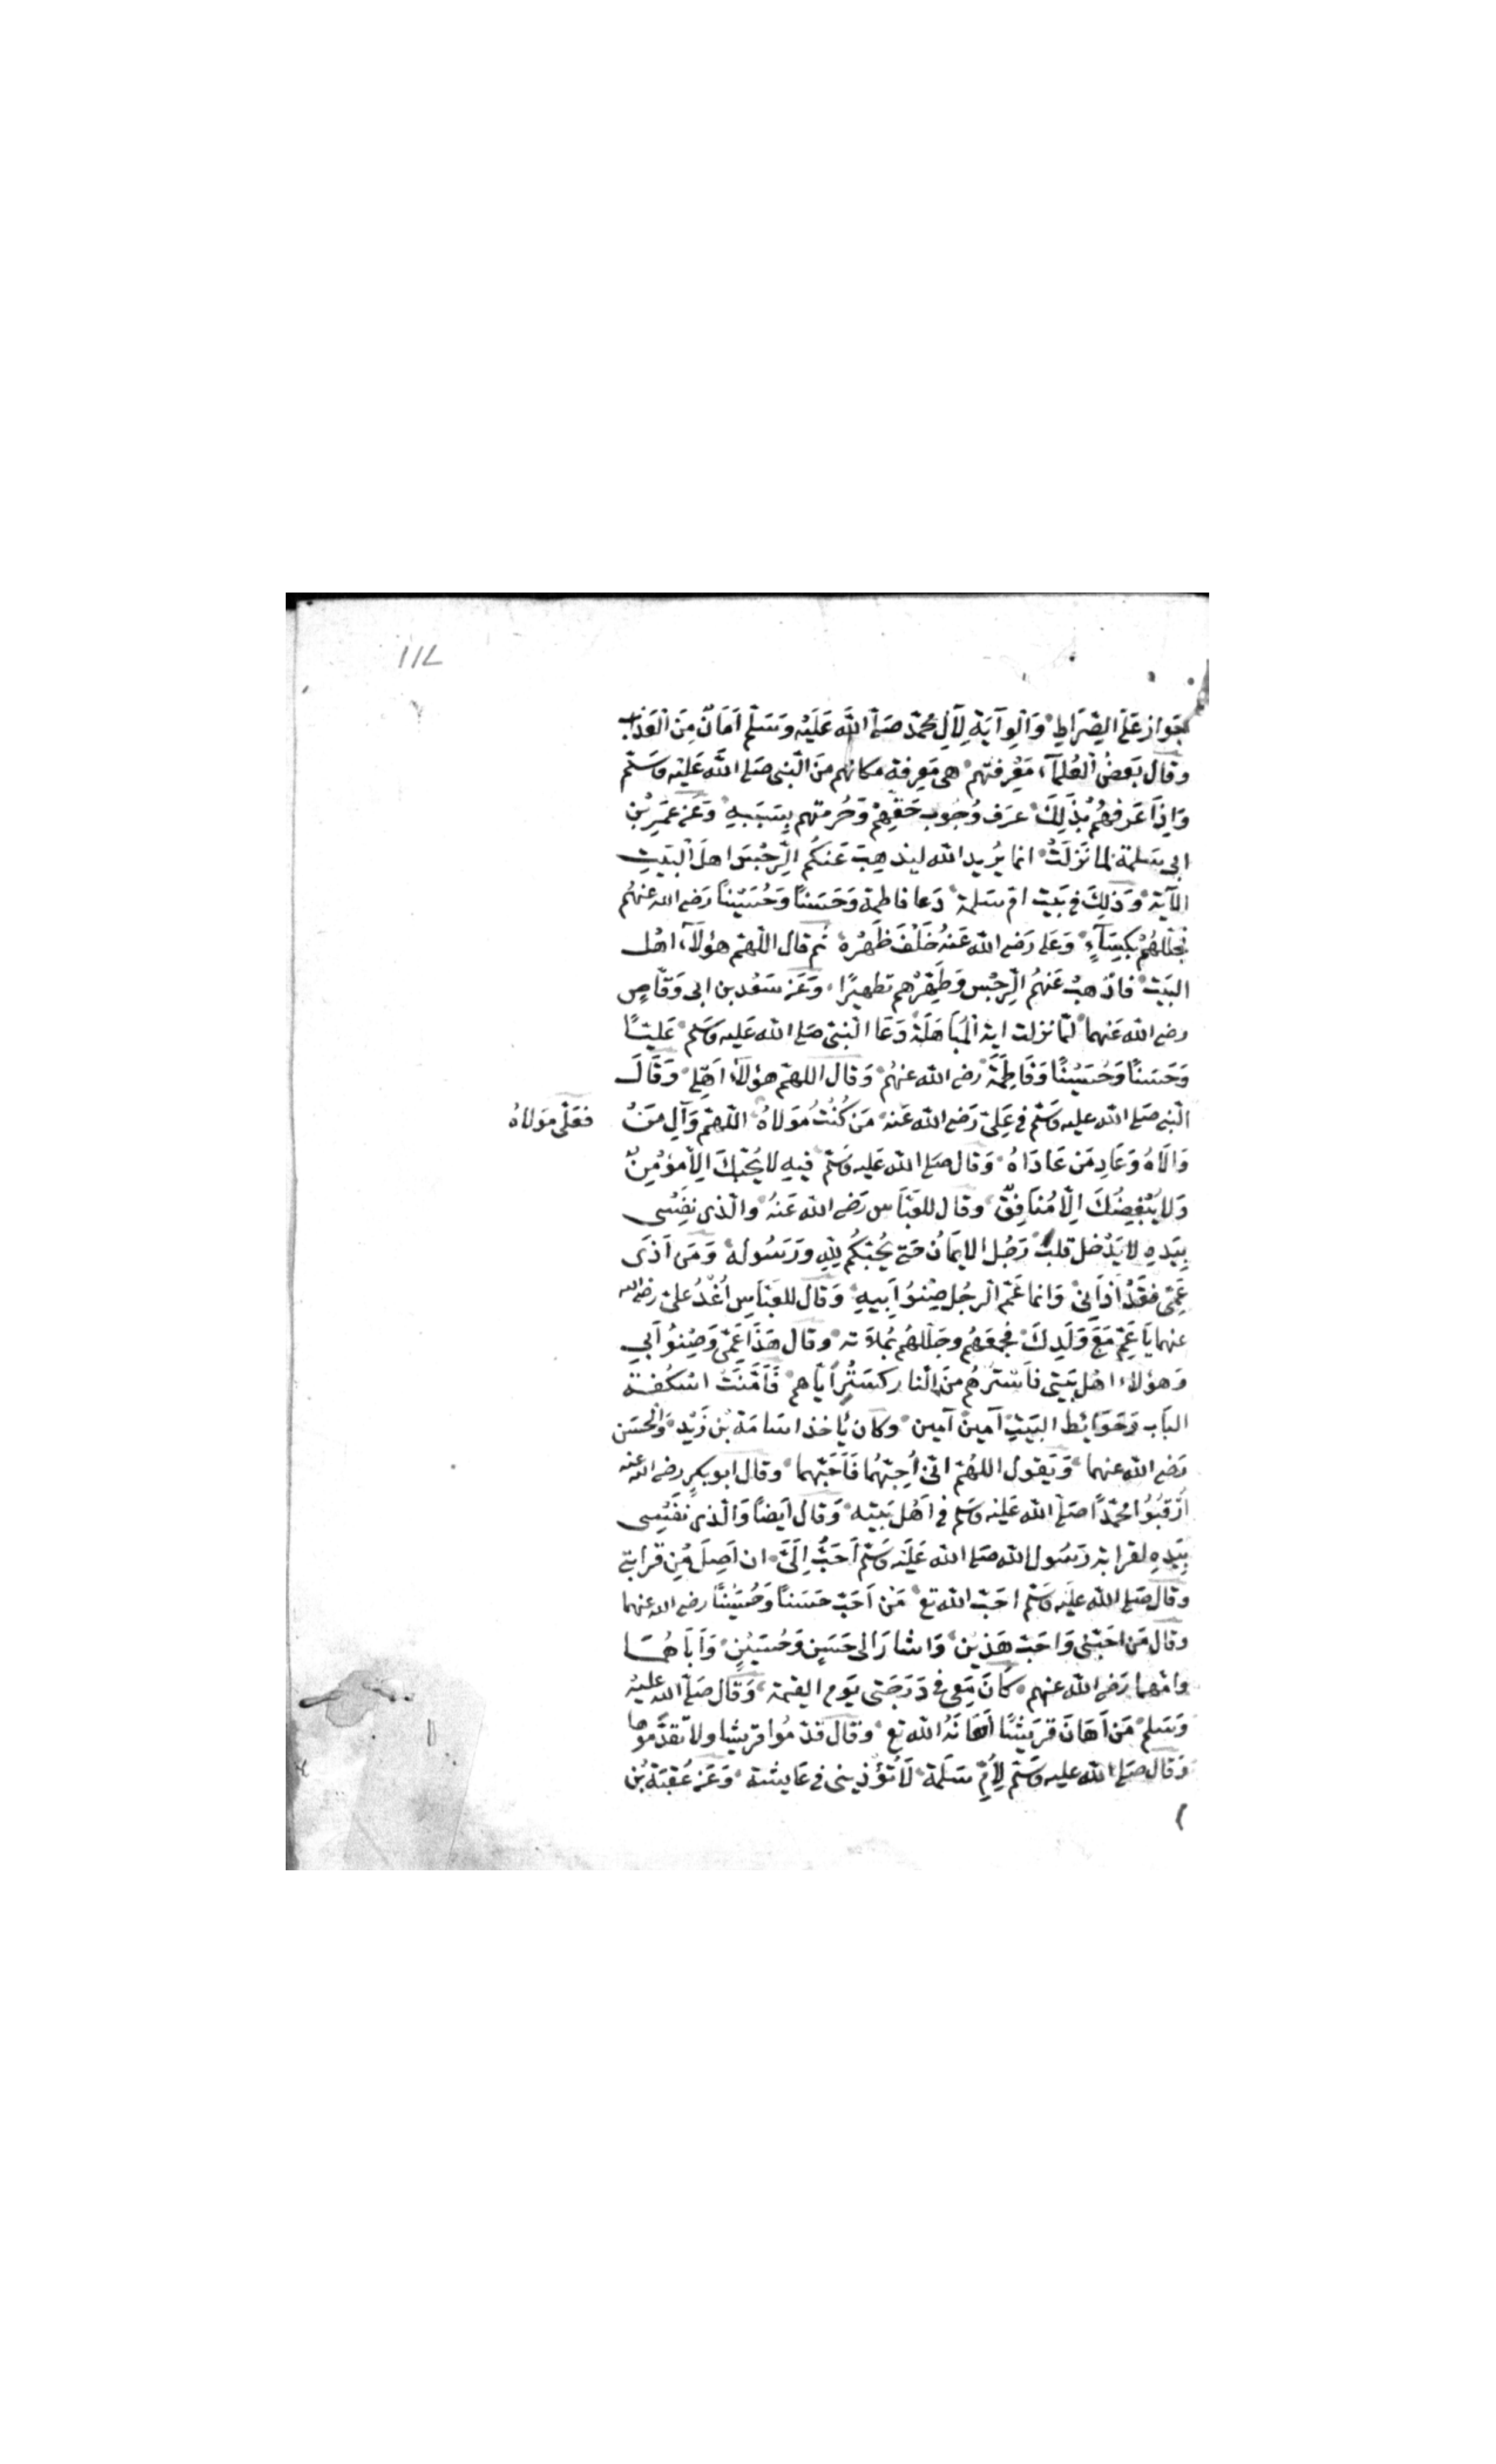 ١١٢
جَواز عَلَى الصِّرَاطِ وَالْوِلَايَة لِآلِ مُحَمَّد صَلَّى اللَّه عَلَيْه وَسَلَّم اَمَانٌ مِنَ الْعَذَاب
وقال بَعضُ الْعُلَمَآء مَعْرفتهم هى مَعرفة مكانهم مَن النّبى صَلى اللَّه عَليه وَسَلّم
وَاِذَا عَرَفَهُمْ بِذَلِكَ عرَف وُجُوب حَقِّهِمْ وَحُرمتهم بِسَبَبِهِ وَعَن عُمَر بْن
ابى سَلمة لما نَزَلَتْ انما يُريد الله ليذهِبَ عَنكُم الرّجْسَ اهلَ الْبَيتِ
الآية وَذلِكَ فى بَيت امّ سَلمة دَعا فاطمة وَحَسَناً وَحُسَيْناً رَضى الله عنهُم
فجلّلهُمْ بِكِسَآءٍ وَعَلى رَضى الله عَنهُ خَلْفَ ظَهْره ثم قال اللّهمّ هؤلَآء اهْل
البَيت فاذْهبْ عَنهُم الرِّجْس وَطَهِّرْهم تطهيرًا وَعَن سَعْد بن ابى وَقّاصٍ
رضى الله عَنهما لمّا نزلت اية الْمُبَاهَلَة دَعَا النّبىّ صَلى الله عَليه وَسَلم عَليًّا
وَحَسَنًا وَحُسَيْنًا وَفَاطِمَةَ رضى الله عنهُم وَقال اللهمّ هؤلَاء اَهْلِى وَقَالَ
النّبى صَلى الله عليه وَسَلّم فى عَلِىّ رَضى الله عَنه مَن كُنْتُ مَوَلاهُ اللّهمّ وَالِ مَنْ
فعَلىّ مَولاهُ
وَالَاهُ وَعَادِ مَن عَادَاهُ وَقال صَلى الله عَليه وَسَلّم فيهِ لَا يُحِبّكَ اِلّا مؤمِنٌ
وَلا يُبْغِضُكَ اِلّا مُنَافِقٌ وقال للعَبّاس رَضى الله عَنهُ والّذى نَفْسِى
بِيَدهِ لا يَدْخل قلبَ رَجُل الايمَانُ حَتى يُحِبّكُم لِلّهِ وَرَسُوله وَمَن آذَى
عَمِّى فقَدْ آذَانِى وَانما عَمّ الرجُل صِنْوُ اَبِيهِ وَقال للعَبّاسِ اُغْدُ علىّ رضى الله
عنهما يَا عَمّ مَعَ وَلَدِكَ فجمعَهُم وجَلّلهُم بمُلَاءَته وقال هَذَا عَمِّى وَصِنْوُ اَبِى
وَهؤلاء اهْل بَيتى فاسْترْهُم منَ النّار كسَتْرِى اياهم فَاَمّنَتْ اسكُفَّة
البَاب وَحَوَائط البَيتِ آمينْ آمين وكان يأخذ اسَامَة بْن زَيْد وَالْحَسَن
رَضى الله عنهما وَيَقول اللهُمّ انّى اُحِبّهُما فَاَحِبّهما وقال ابو بكرٍ رضى الله عنه
اُرْقُبُوا محمّدًا صَلى الله عَليه وَسَلم فى اَهْل بَيته وَقال اَيضاً وَالّذى نَفْسِى
بِيَدهِ لقرابة رَسُول الله صَلى الله عَلَيْه وَسَلّم اَحَبُّ اِلَىَّ ان اَصِلَ مِن قرابتى
وقال صَلى الله عَليه وَسَلم احَبّ الله تع مَنْ اَحَبّ حَسَناً وَحُسَيْناً رضى الله عنهما
وقال مَن احَبّنى وَاحَبّ هَذيْن وَاشارَ الى حَسَن وَحُسَيْنٍ وَاَبَاهُمَا
وامّهما رَضى الله عنهم كَانَ مَعِى فى دَرَجَتى يَوم القيمة وَقال صَلى الله عليه
وَسَلم مَن اَهَانَ قرَيشًا اَهَانَهُ الله تع وقال قدّمُوا قريشا ولا تقدّمُوها
وَقال صَلى الله عليه وَسَلّم لِاُمِّ سَلَمَة لَا تُؤْذينى فى عَايشة وَعَن عُقبَة بْن